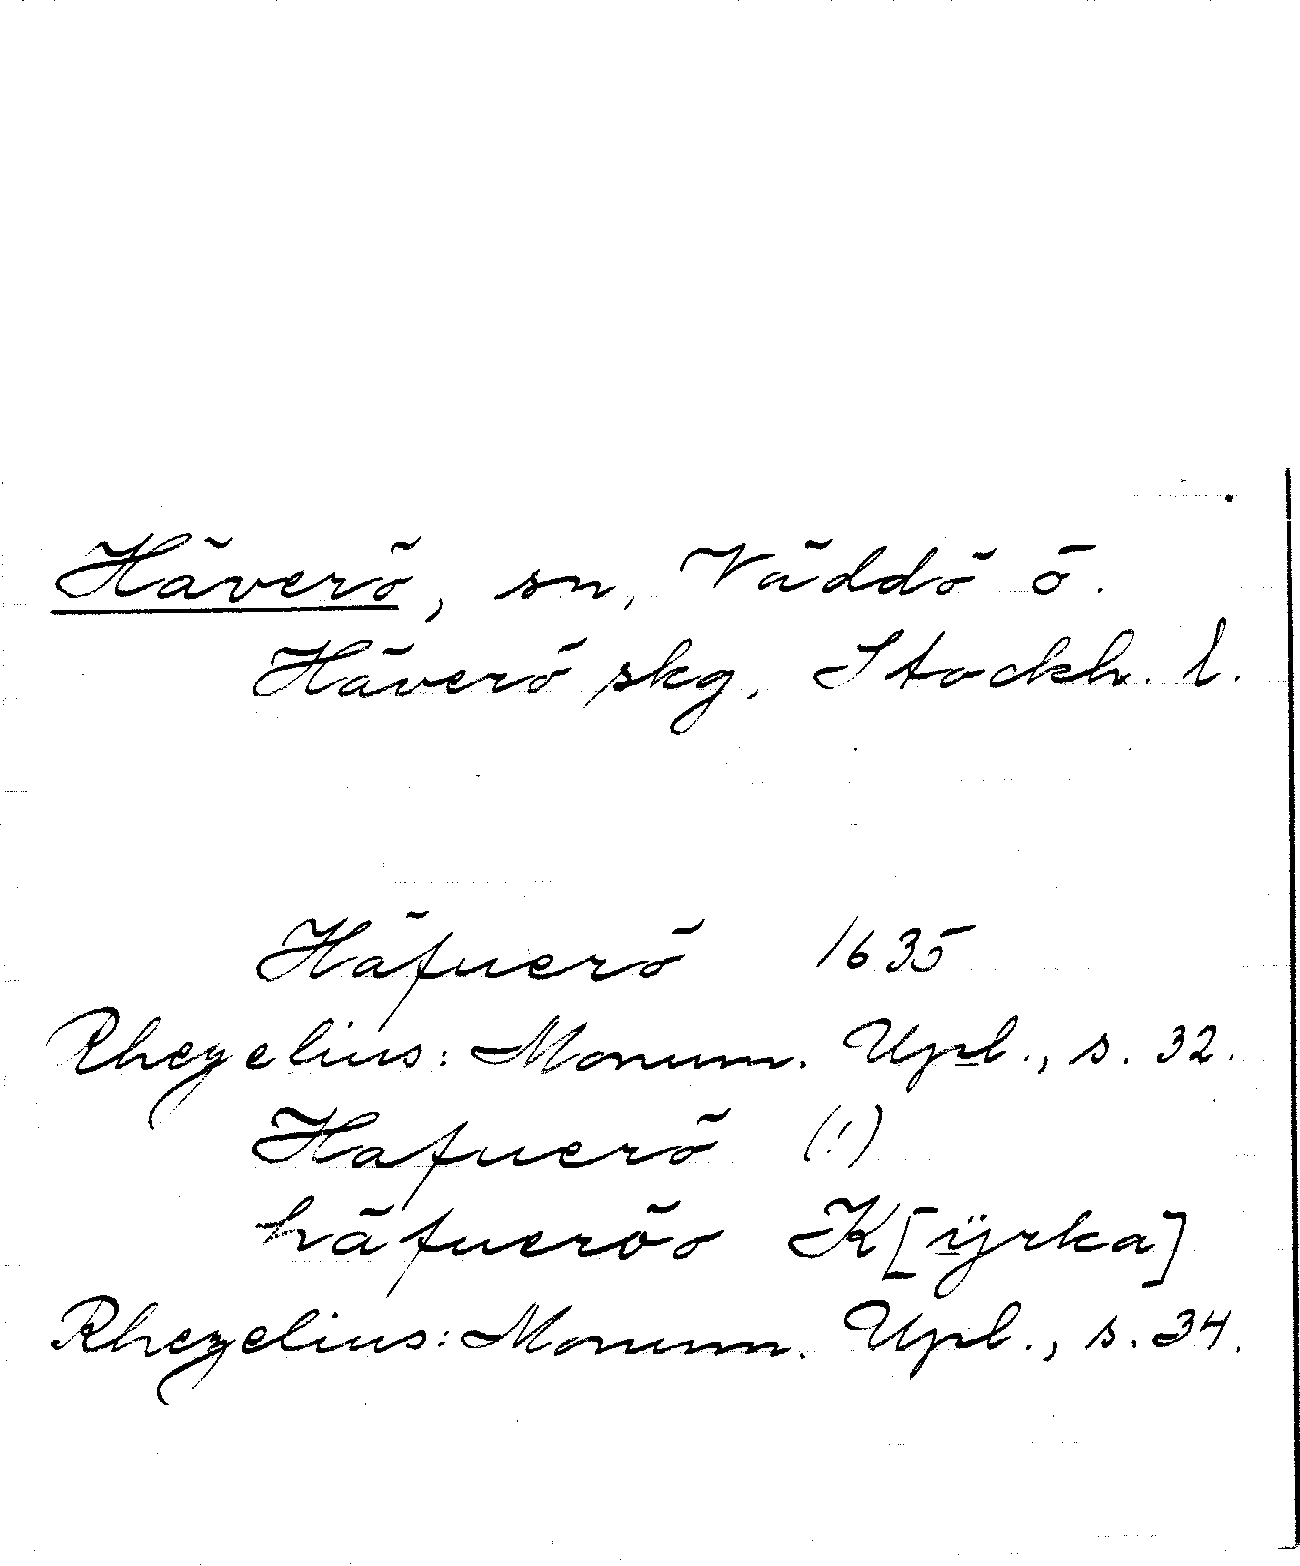 Häverö, sn, Väddö ö.
Häverö skg, Stockh. l.
Häfuerö 1635
Rhezelius: Monum. Upl., s. 32.
Hafuerö (!)
häfueröo K[ÿrka]
Rhezelius: Monum. Upl., s. 34.